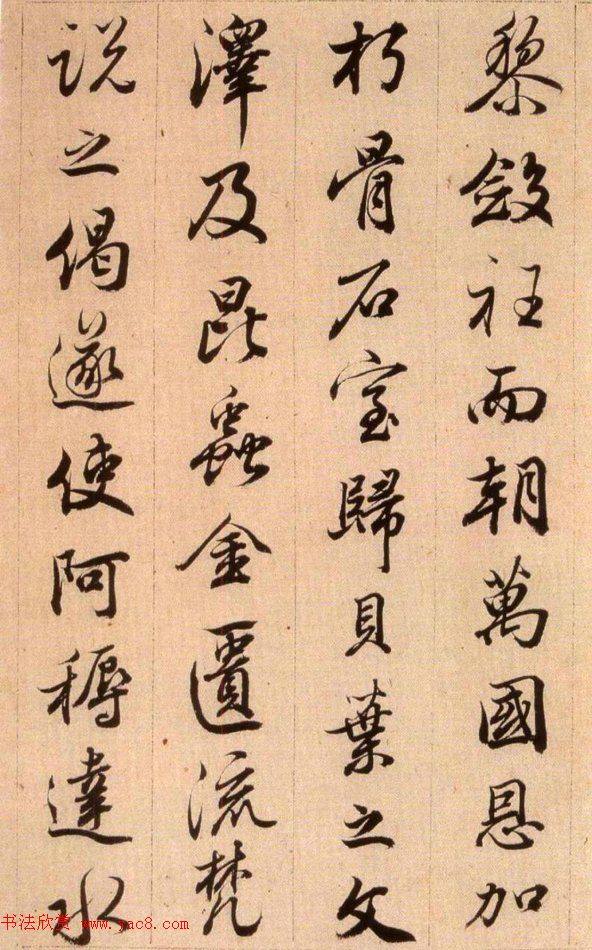 黎斂衽而朝萬國恩加
朽骨石室歸貝葉之文
澤及昆蟲金匱流梵
說之偈遂使阿耨達水
书法欣赏 www.yac8.com